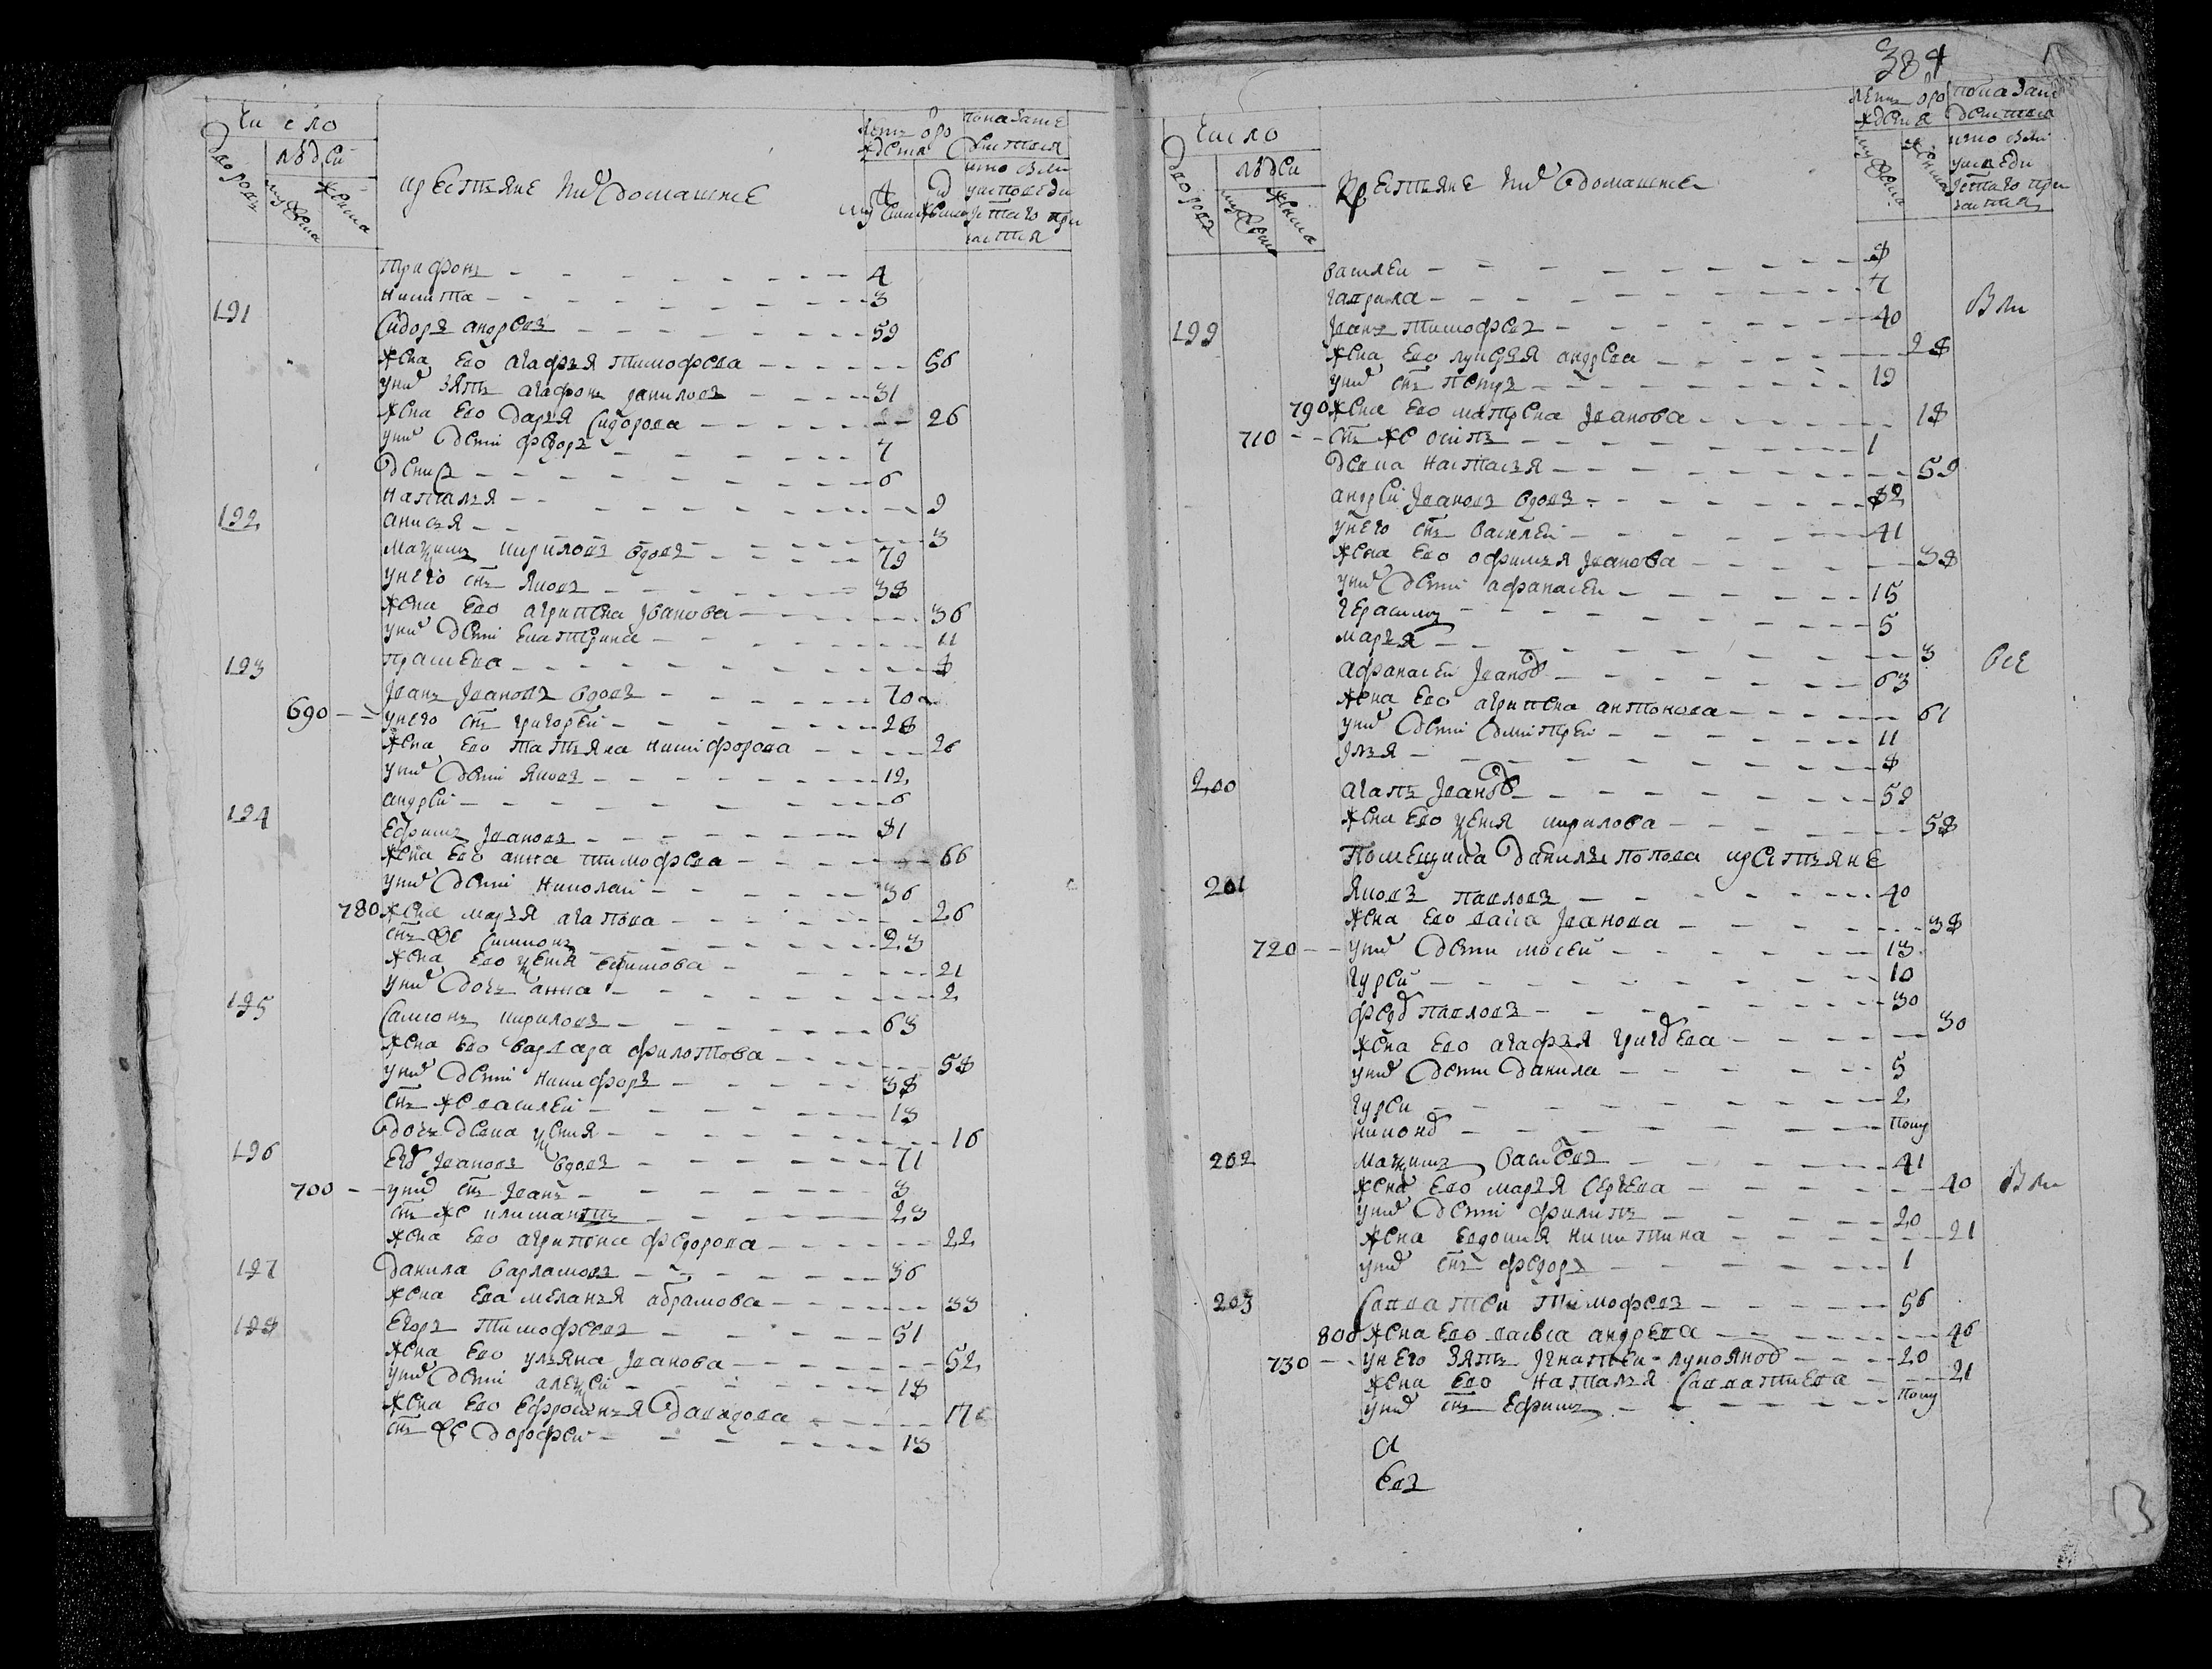 Число
дворовъ
людей
мужеска
женска
крестьяне и ихъ домашние
летъ от рождения
мужска
женска
показание действа кто был у исповеди и святаго причастия
Трифонъ 4
Никита 3
191 Сидоръ андреевъ 59
жена ево агафья тимофеева 56
у них зять агафонъ даниловъ 31
жена ево дарья Сидорова 26
у них дети федоръ 7
денисъ 6
наталья 9
192 анисья 3
Мазимъ кириловъ вдовъ 79
у него снъ яковъ 38
жена ево агрипена Іванова 36
у них дети екатерина 11
193 прасковя 8
Іванъ Івановъ вдовъ 70
690 у него снъ григорей 28
жена ево татьяна никифорова 26
у них дети яковъ 12
андрей 6
194
Ефимъ Івановъ 81
жена ево анна тимофеева 66
у них дети николай 36
780 жена марья агапова 26
снъ же Симионъ 23
жена ево ксения ефимова 21
у них дочь анна 2
195 Самсонъ кириловъ 63
жена ево варвара филотова 58
у них дети никифоръ 38
снъ же василей 18
дочь девка ксения 16
196 Егоръ Івановъ вдовъ 71
700 у них снъ Іванъ 3
снъ же климантъ 23
жена ево агрипена федорова 22
197 данила варламовъ 36
жена ева меланья абрамова 33
198 Егоръ тимофеевъ 51
жена ево ульяна Іванова 52
у них дети алексей 18
жена ево Ефросинья давидова 17
снъ же дорофей 13
384
Число
дворовъ
людей
мужеска
женска
Крестьяне и ихъ домашние
летъ от рождения
мужеска
женска
показание действа кто был у исповеди и святаго причастия
василей 8
гаврила 7
Были
199 Іванъ тимофеевъ 40
жена ево лукерья андреева 28
у них снъ петръ 19
790 жена ево матрена Іванова 18
710 снъ же осипъ 1
девка настасья 59
андрей Івановъ вдовъ 82
у него снъ василей 41
жена ево офимья Іванова 38
у них дети афанасей 15
герасимъ 5
марья 3
Все
афанасей Івановъ 63
жена ево агрипена антонова 61
у них дети дмитрей 11
Ілья 8
200 агапъ Івановъ 59
жена ево ксения кирилова 58
Помещика данилы попова крестьяне
201 яковъ павловъ 40
жена ево васа Іванова 38
720 у них дети мосей 13
гурей 10
федоръ павловъ 30
жена ево агафья григорева 30
у них дети данила 5
гурей 2
никоноръ полу
202 Мазимъ Василевъ 41
жена ево марья сергева 40
Были
у них дети филипъ 20
жена евдокия никитина 21
у них снъ федоръ 1
203 Савватеи тимофеевъ 56
800 жена ево васвса андрева 46
730 у него зять Ігнатеи лукояновъ 20
жена ево наталья Савватиева 21
у них снъ Ефимъ полу
а
евъ